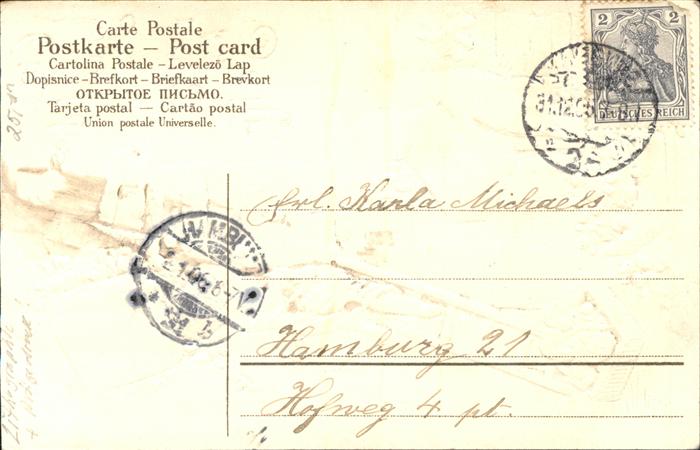 Carte Postale
Postkarte — Post card
Cartolina Postale – Levelező Lap
Dopisnice – Brefkort – Briefkaart – Brevkort
ОТКРЫТОЕ ПИСЬМО.
Tarjeta postal — Cartão postal
Union postale Universelle.
2 2
DEUTSCHES REICH
31.12.05
Frl. Karla Michaels
Hamburg 21
Hofweg 4 pt.